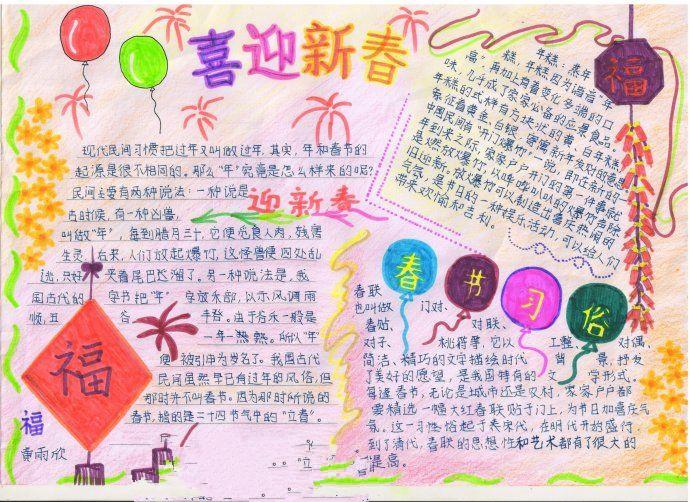 喜迎新春
现代民间习惯把过年又叫做过年.其实,年和春节的
起源是很不相同的。那么"年"究竟是怎么样来的呢?
民间主要有两种说法:一种说是
古时候,有一种凶兽,
叫做"年",每到腊月三十,它便觅食人肉,残害
生灵.后来,人们放起爆竹,这怪兽便四处乱
逃,只好 夹着尾巴 溜了。另一种说法是,我
国古代的 字节把"年" 字放禾部,以示风调雨
顺,五 谷 丰登。由于谷禾一般是
一年一熟熟。所以"年"
便 被引申为岁名了。我国古代
民间虽然早已有过年的风俗,但
那时并不叫春节。因为那时所说的
春节,指的是二十四节气中的"立春"。
迎新春
年糕:蒸年
糕,年糕因为谐音"年
高",再加上有着变化多端的口
味,几乎成了家家必备的应景食品。
年糕的式样有方块状的黄、白年糕,
象征着黄金、白银,寄寓新年发财的意思
中国民间有"开门爆竹"一说。即在新的一
年到来之际,家家户户开门的第一件事就
是燃放爆竹,以哔哔叭叭的爆竹声除
旧迎新。放爆竹可以制造出喜庆热闹的
气氛,是节日的一种娱乐活动,可以给人们
带来欢愉和吉利。
福
春节习俗
春联
也叫做 门对、
春贴、 对联、
对子、 桃符等,它以 工整、 对偶、
简洁、精巧的文字描绘时代 背 景,抒发
了美好的愿望,是我国特有的 文 学形式。
每逢春节,无论是城市还是农村,家家户户都
要精选一幅大红春联贴于门上,为节日加喜庆气
氛。这一习俗起于 宋代,在明代开始盛行,
到了清代,春联的思想性和艺术都有了很大的
提高。
福
福
黄雨欣
"立